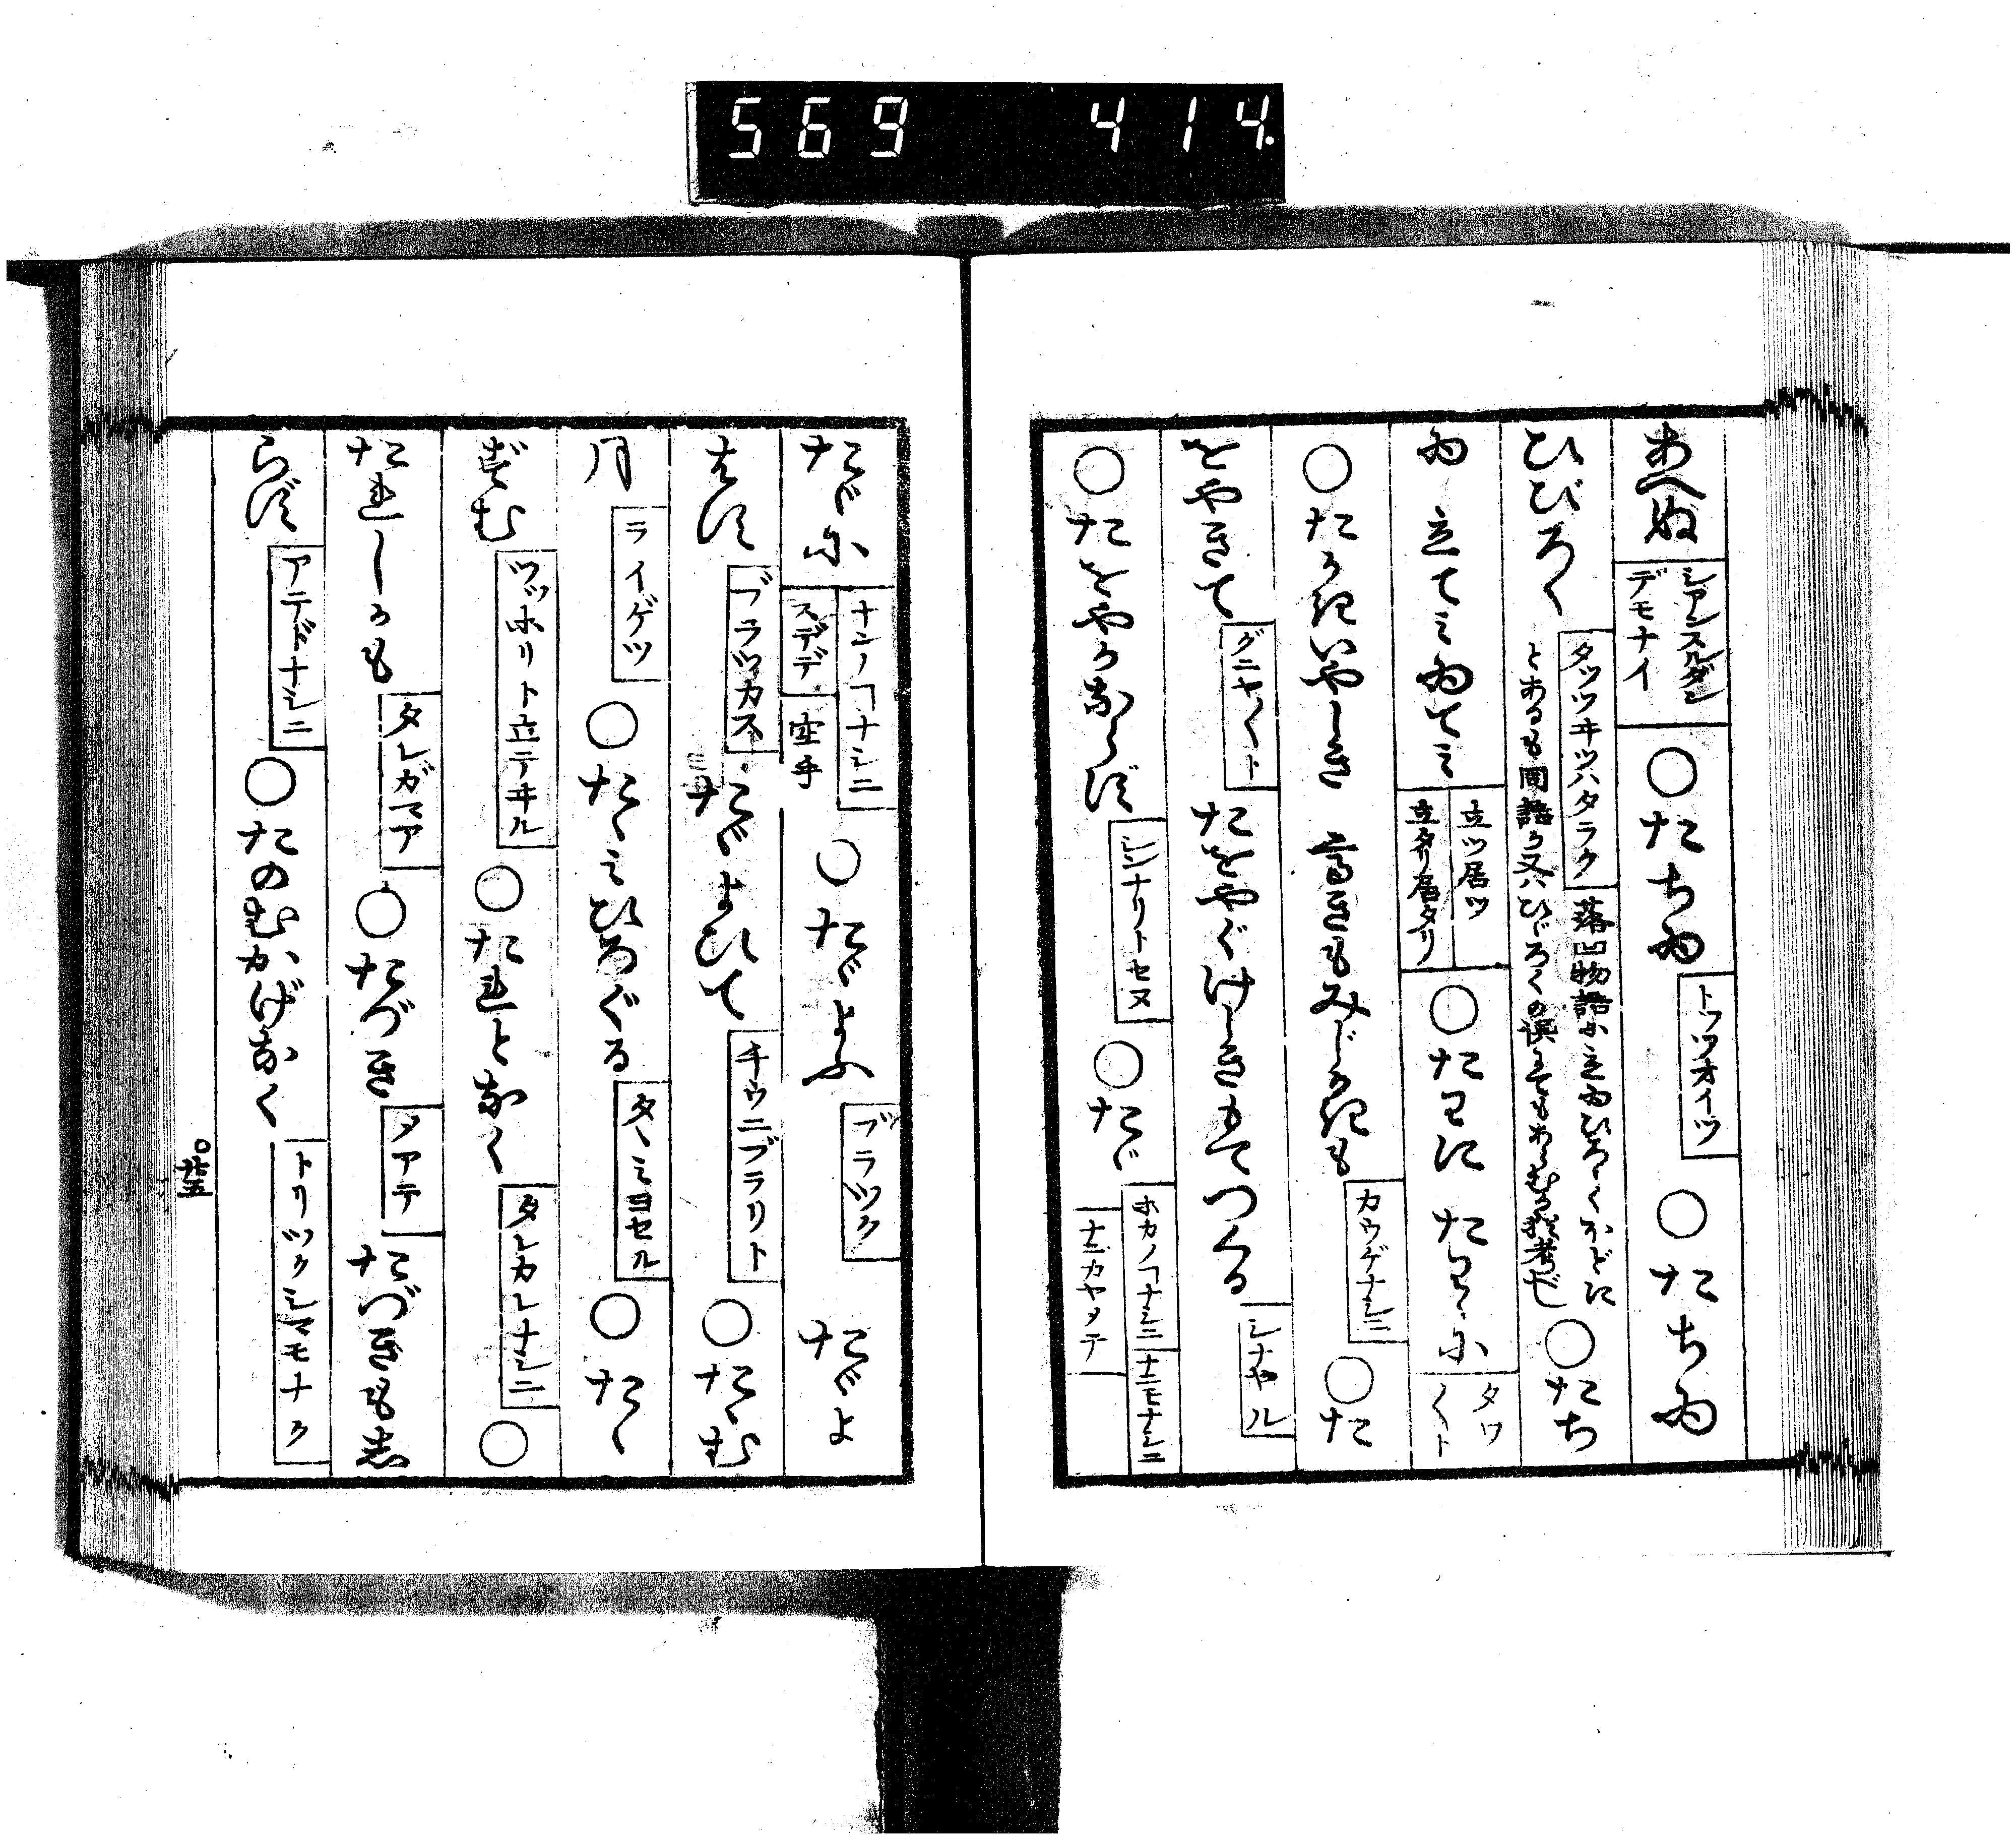 569 414.
あへぬ シアンスルダンデモナイ ○たちゐ トツツオイツ ○たちゐ
ひびろく タツツヰツハタラク 落凹物語に立ゐひろくなどに とあるも同語か又ハひじろくの誤にてもあらむか猶考べし ○たち
ゐ 立てミゐてミ 立ツ居ツ 立タリ居タリ ○たわに たわゝに タワ〱ト
○たかきいやしき 高きもみじかきも カウゲナシニ ○た
をやきて グニヤ〱ト たをやぐけしきもてつくる シナヤル
○たをやかならず シンナリトセヌ ○たゞ ホカノ𪜈ナシニ ナニモナシニ ナニカヤメテ
たゞに ナンノヿナシニ スデデ 空手 ○たゞよふ ブラツク たゞよ
はす ブラツカス たゞよひて チウニブラリト ○たゝむ
月 ライゲツ ○たゝみひろぐる タヽミヨセル ○たゝ
ずむ ツツホリト立テヰル ○たれとなく タレカレナシニ ○
たれしかも タレガマア ○たづき アテ たづきも志
らず アテドナシニ ○たのむかげなく トリツクシマモナク
○廿五